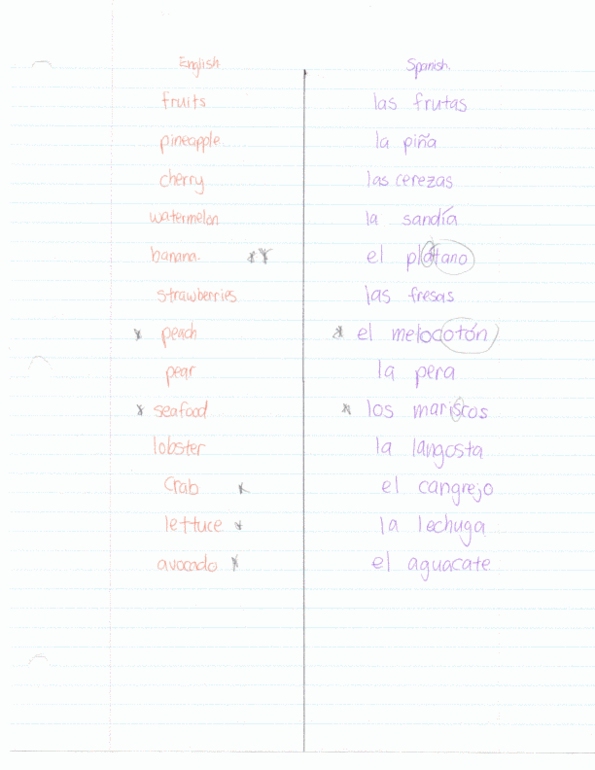 English Spanish
fruits las frutas
pineapple la piña
cherry las cerezas
watermelon la sandía
banana. el plátano
strawberries las fresas
peach el melocotón
pear la pera
seafood los mariscos
lobster la langosta
Crab el cangrejo
lettuce la lechuga
avocado el aguacate